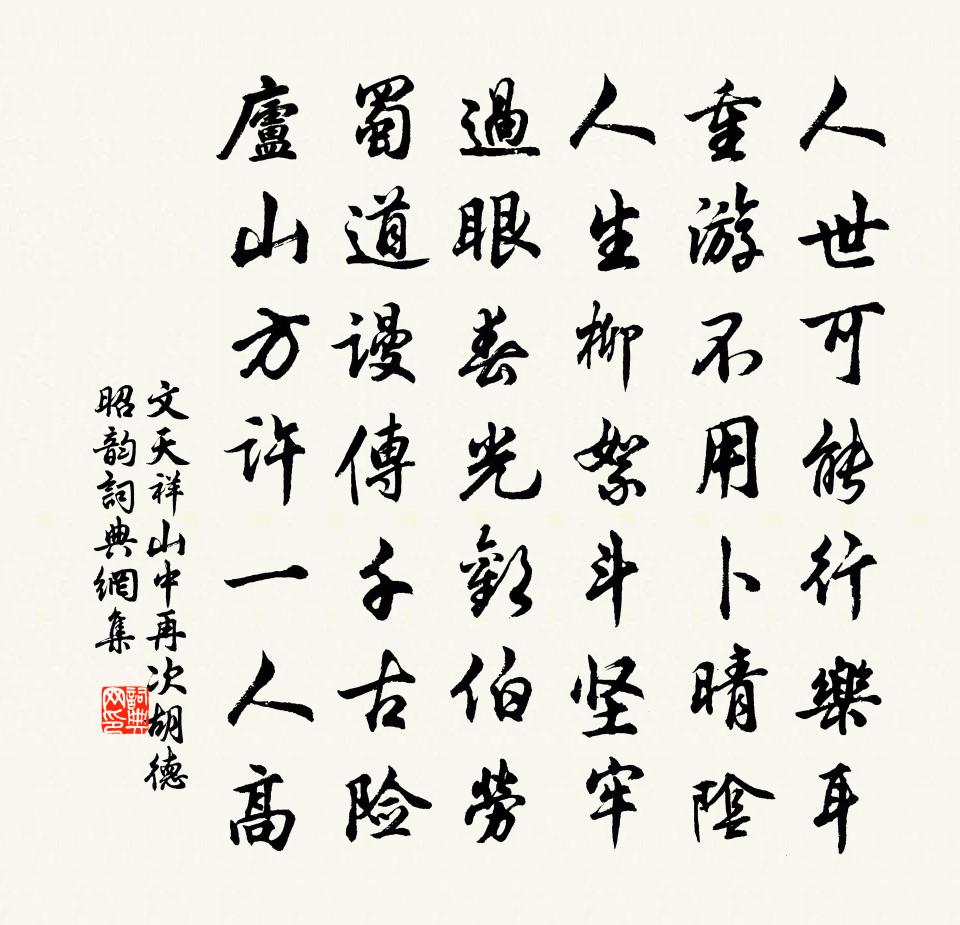 人世可能行樂耳
重游不用卜晴陰
人生柳絮斗坚牢
過眼春光勸伯勞
蜀道謾傳千古险
廬山方許一人高
文天祥山中再次胡德
昭韵詞典網集
詞典网印